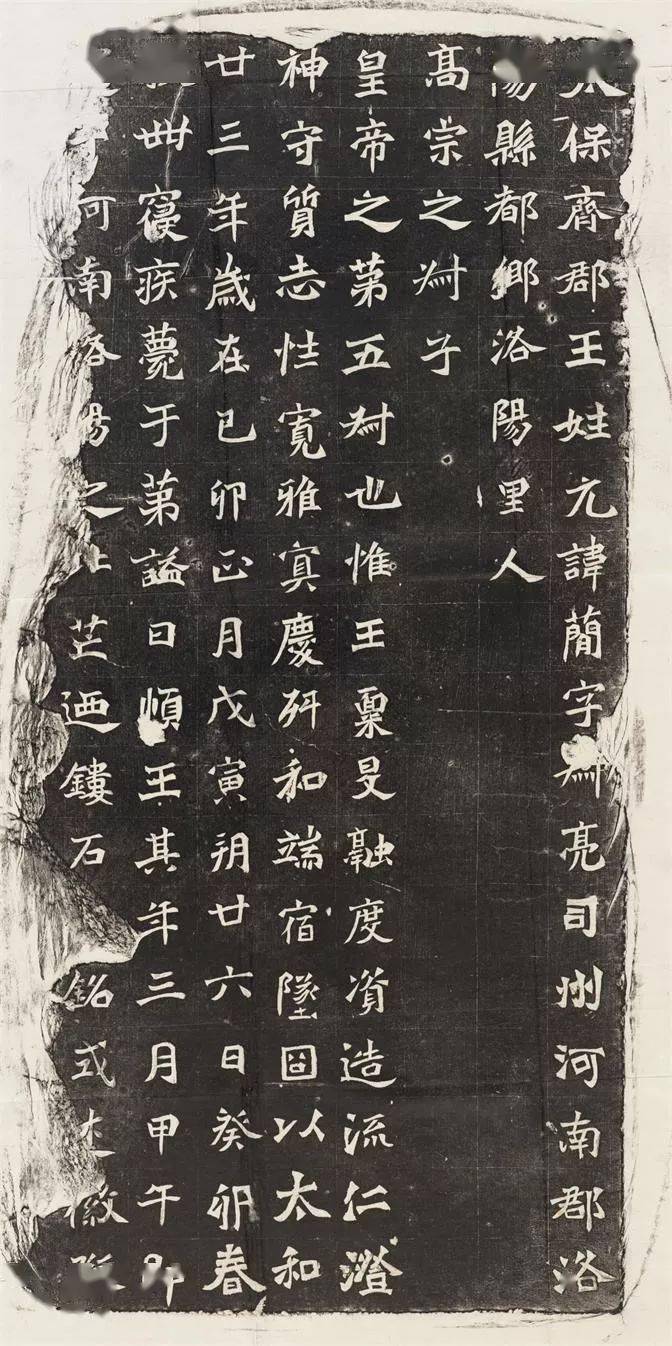 太保齊郡王姓元諱簡字叔亮司州河南郡洛
陽縣都鄉洛陽里人
高宗之叔子
皇帝之第五叔也惟王稟旻融度資造流仁澄
神守質志性寬雅冥慶舛和端宿墜固以太和
廿三年歲在己卯正月戊寅朔廿六日癸卯春
卌寢疾薨于第諡曰順王其年三月甲午即
于河南洛陽之北芒迺鏤石銘式述徽